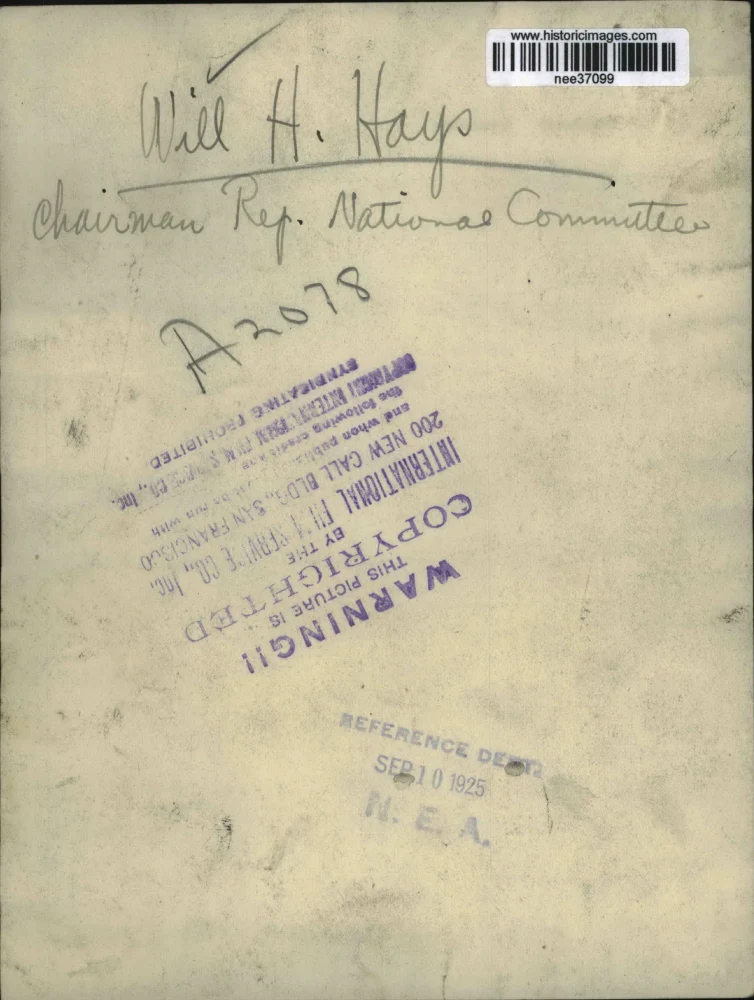 www.historicimages.com
nee37099
Will H. Hays
Chairman Rep. National Committee
A2078
WARNING!!
THIS PICTURE IS
COPYRIGHTED
BY THE
INTERNATIONAL FILM SERVICE CO., Inc.
200 NEW CALL BLDG., SAN FRANCISCO
and when be run with
the following credit line
COPYRIGHT INTERN'L FILM SERVICE CO., Inc.
SYNDICATING PROHIBITED
REFERENCE DEPT.
SEP 10 1925
N. E. A.